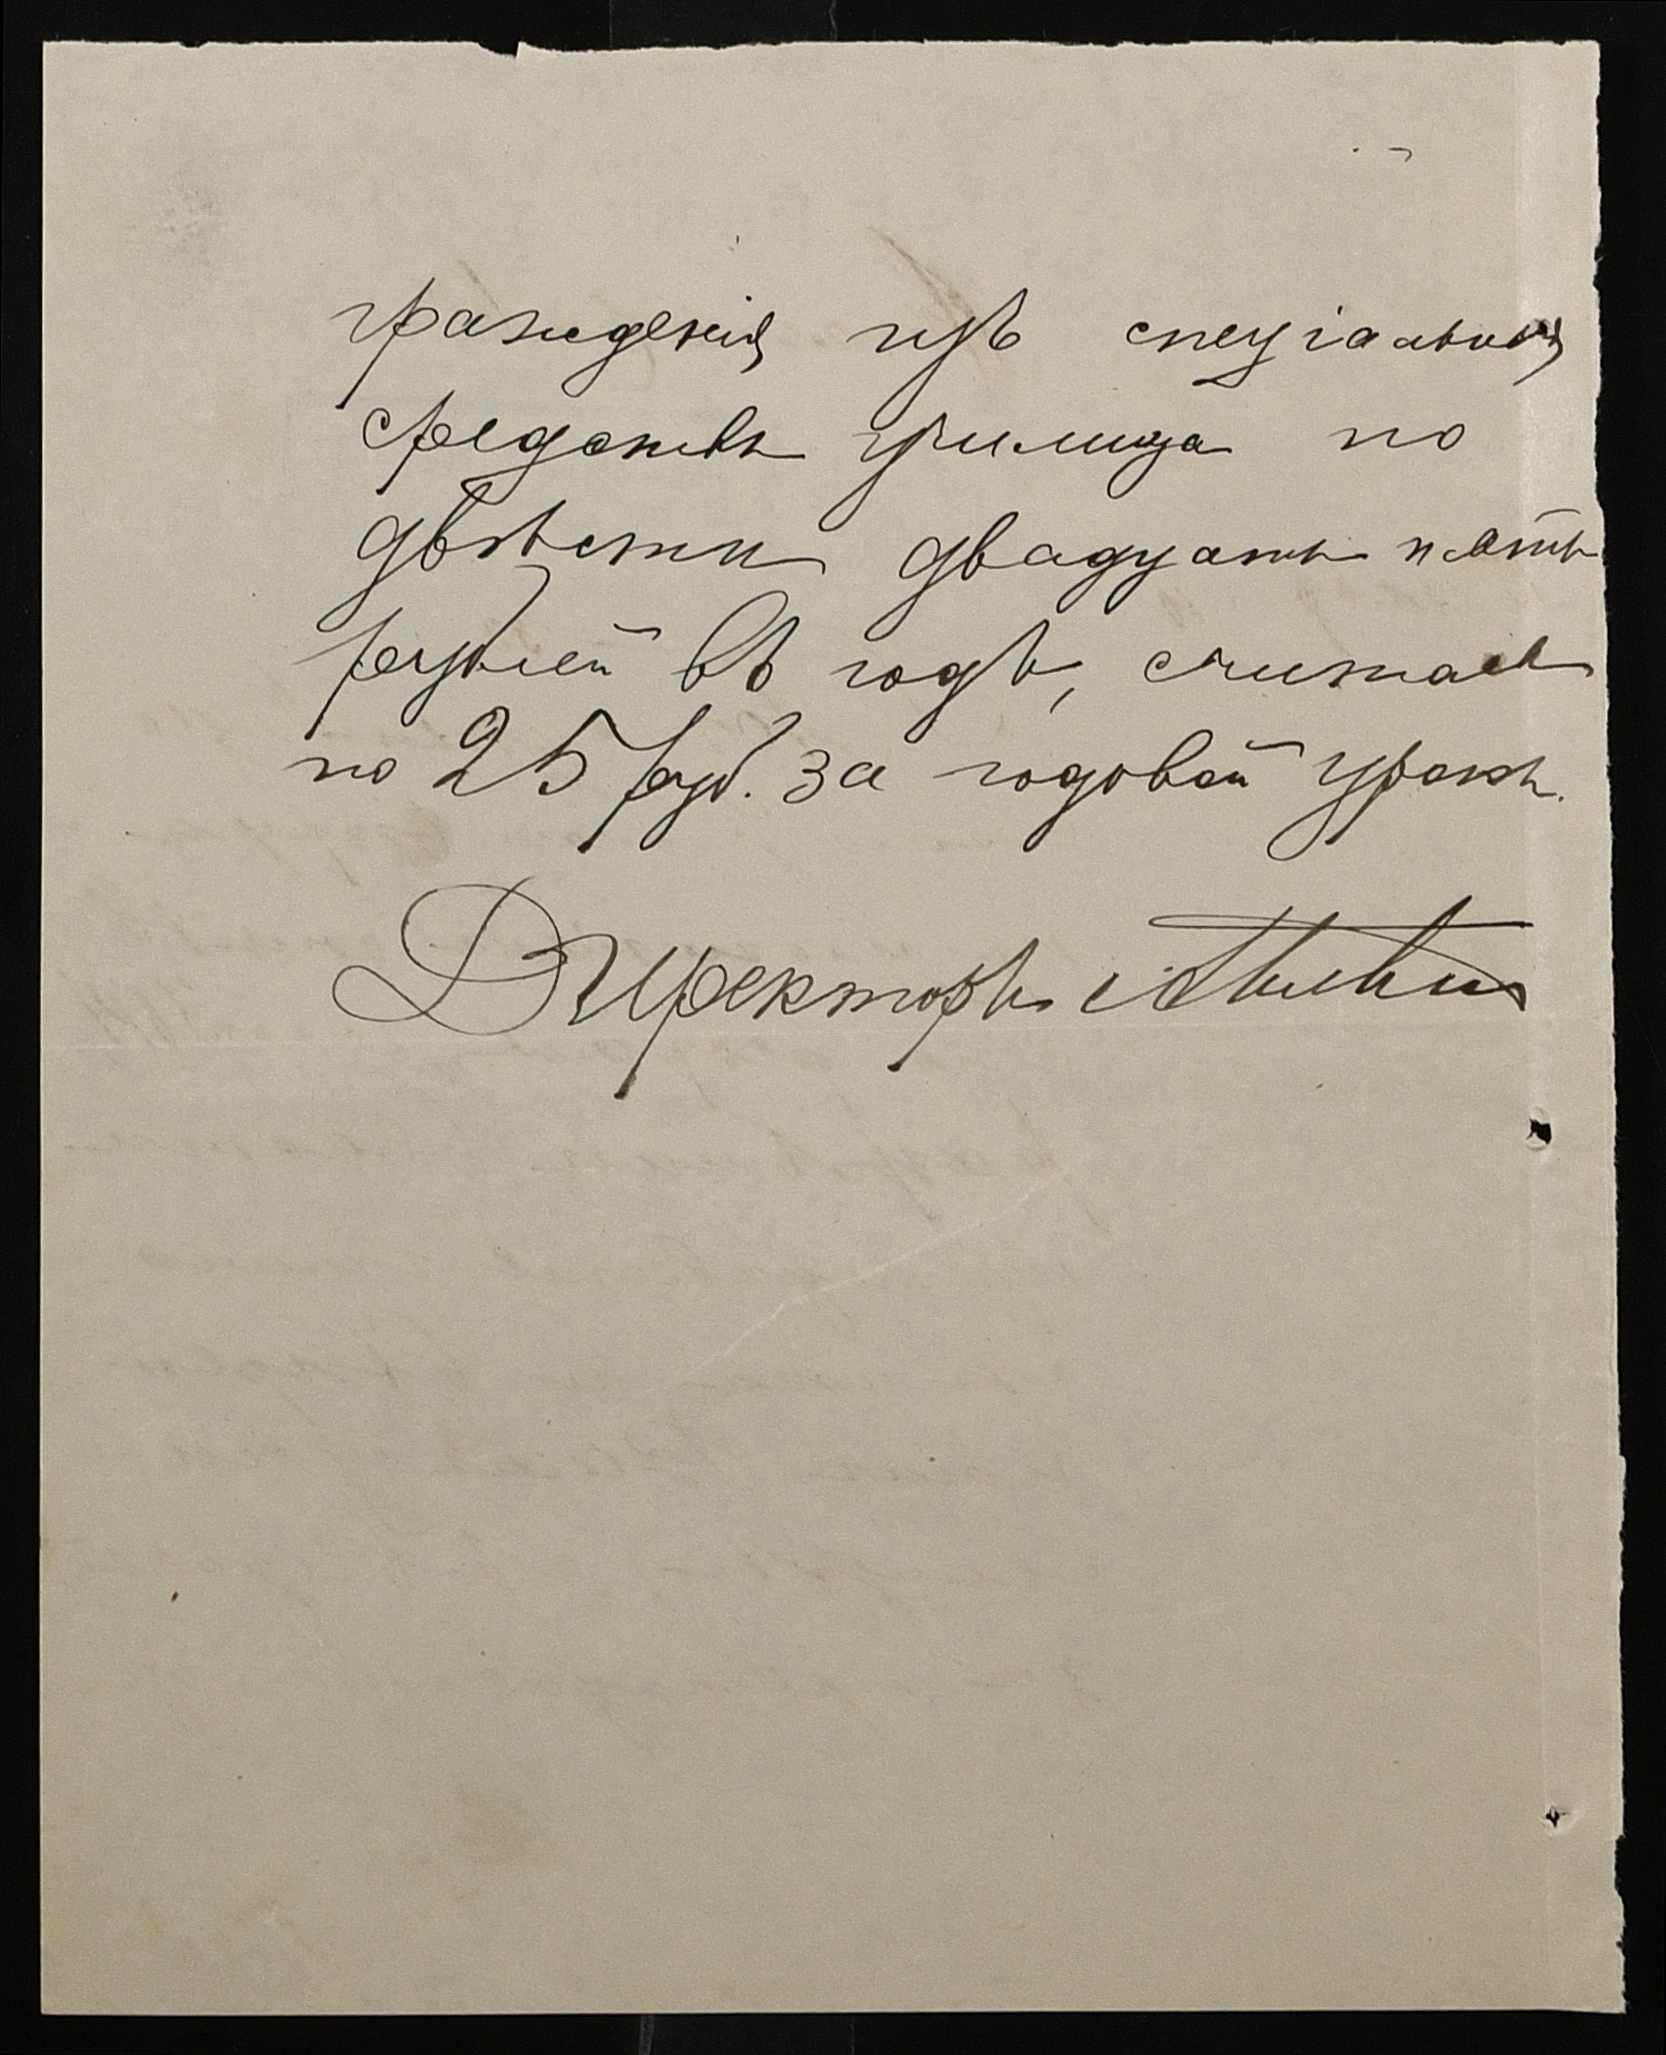 гражденія изъ спеціальныхъ
средствъ училища по
двѣсти двадцать пять
рублей въ годъ, считая
по 25 руб. за годовой урокъ.
Директоръ